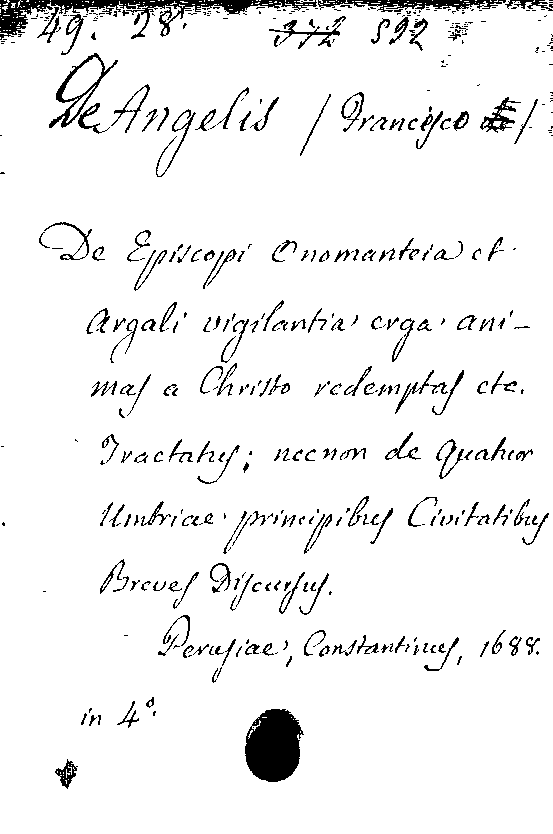 49. 28. 372 592
De Angelis / Francisco de /
De Episcopi Onomanteia et
Argali vigilantia erga ani-
mas a Christo redemptas etc.
Tractatus; necnon de quatuor
Umbriae principibus Civitatibus
Breves Discursus.
Perusiae, Constantinus, 1688.
in 4º.